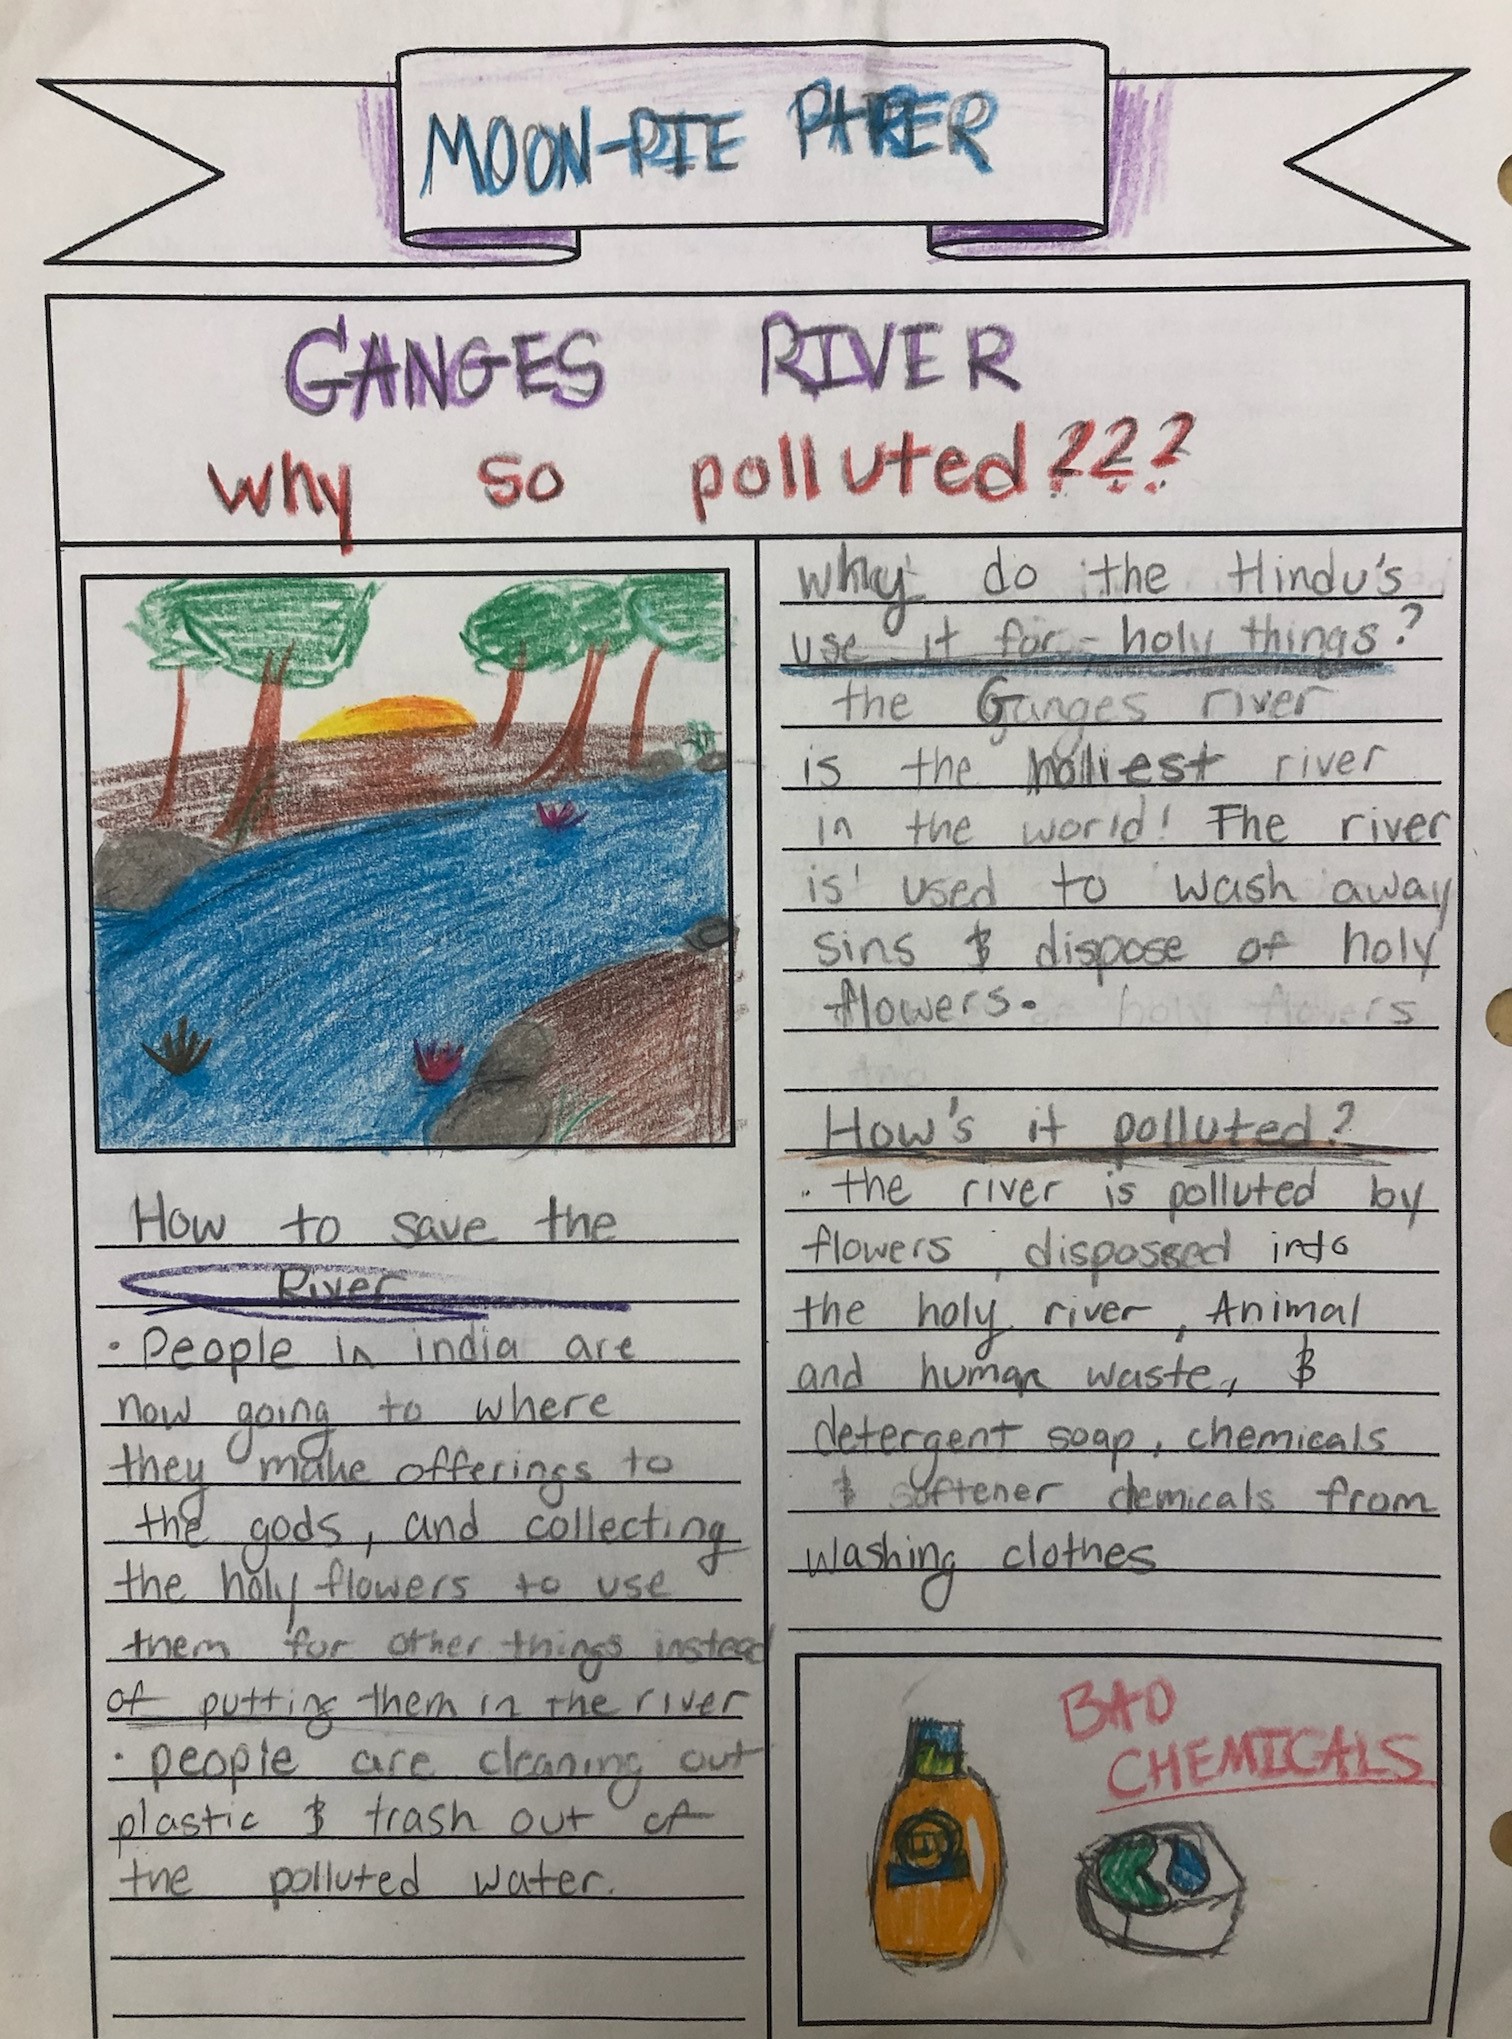 MOON-PIE PAPER
GANGES RIVER
why so polluted???
How to save the
River
· People in india are
now going to where
they make offerings to
the gods, and collecting
the holy flowers to use
them for other things instead
of putting them in the river
· people are cleaning out
plastic & trash out of
the polluted water.
why do the Hindu's
use it for holy things?
the Ganges river
is the holiest river
in the world! The river
is used to wash away
sins & dispose of holy
flowers.
How's it polluted?
· the river is polluted by
flowers, dispossed into
the holy river, Animal
and human waste, &
detergent soap, chemicals
& softener chemicals from
washing clothes
BAD
CHEMICALS